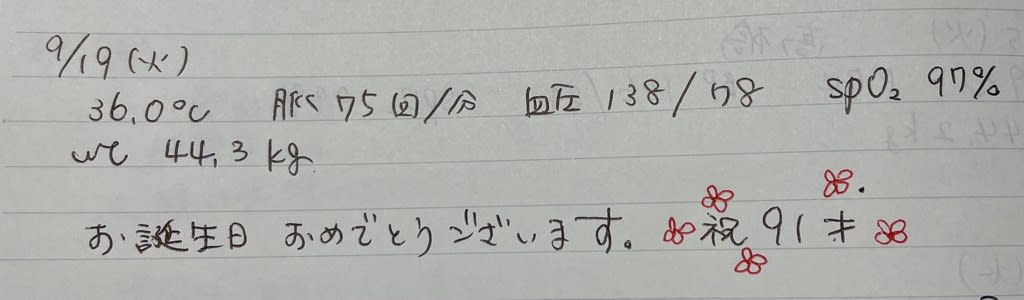 9/19 (火)
36.0℃ 脈 75回/分 血圧 138/78 SpO₂ 97%
wt 44.3 kg
お誕生日 おめでとうございます。 祝 91才